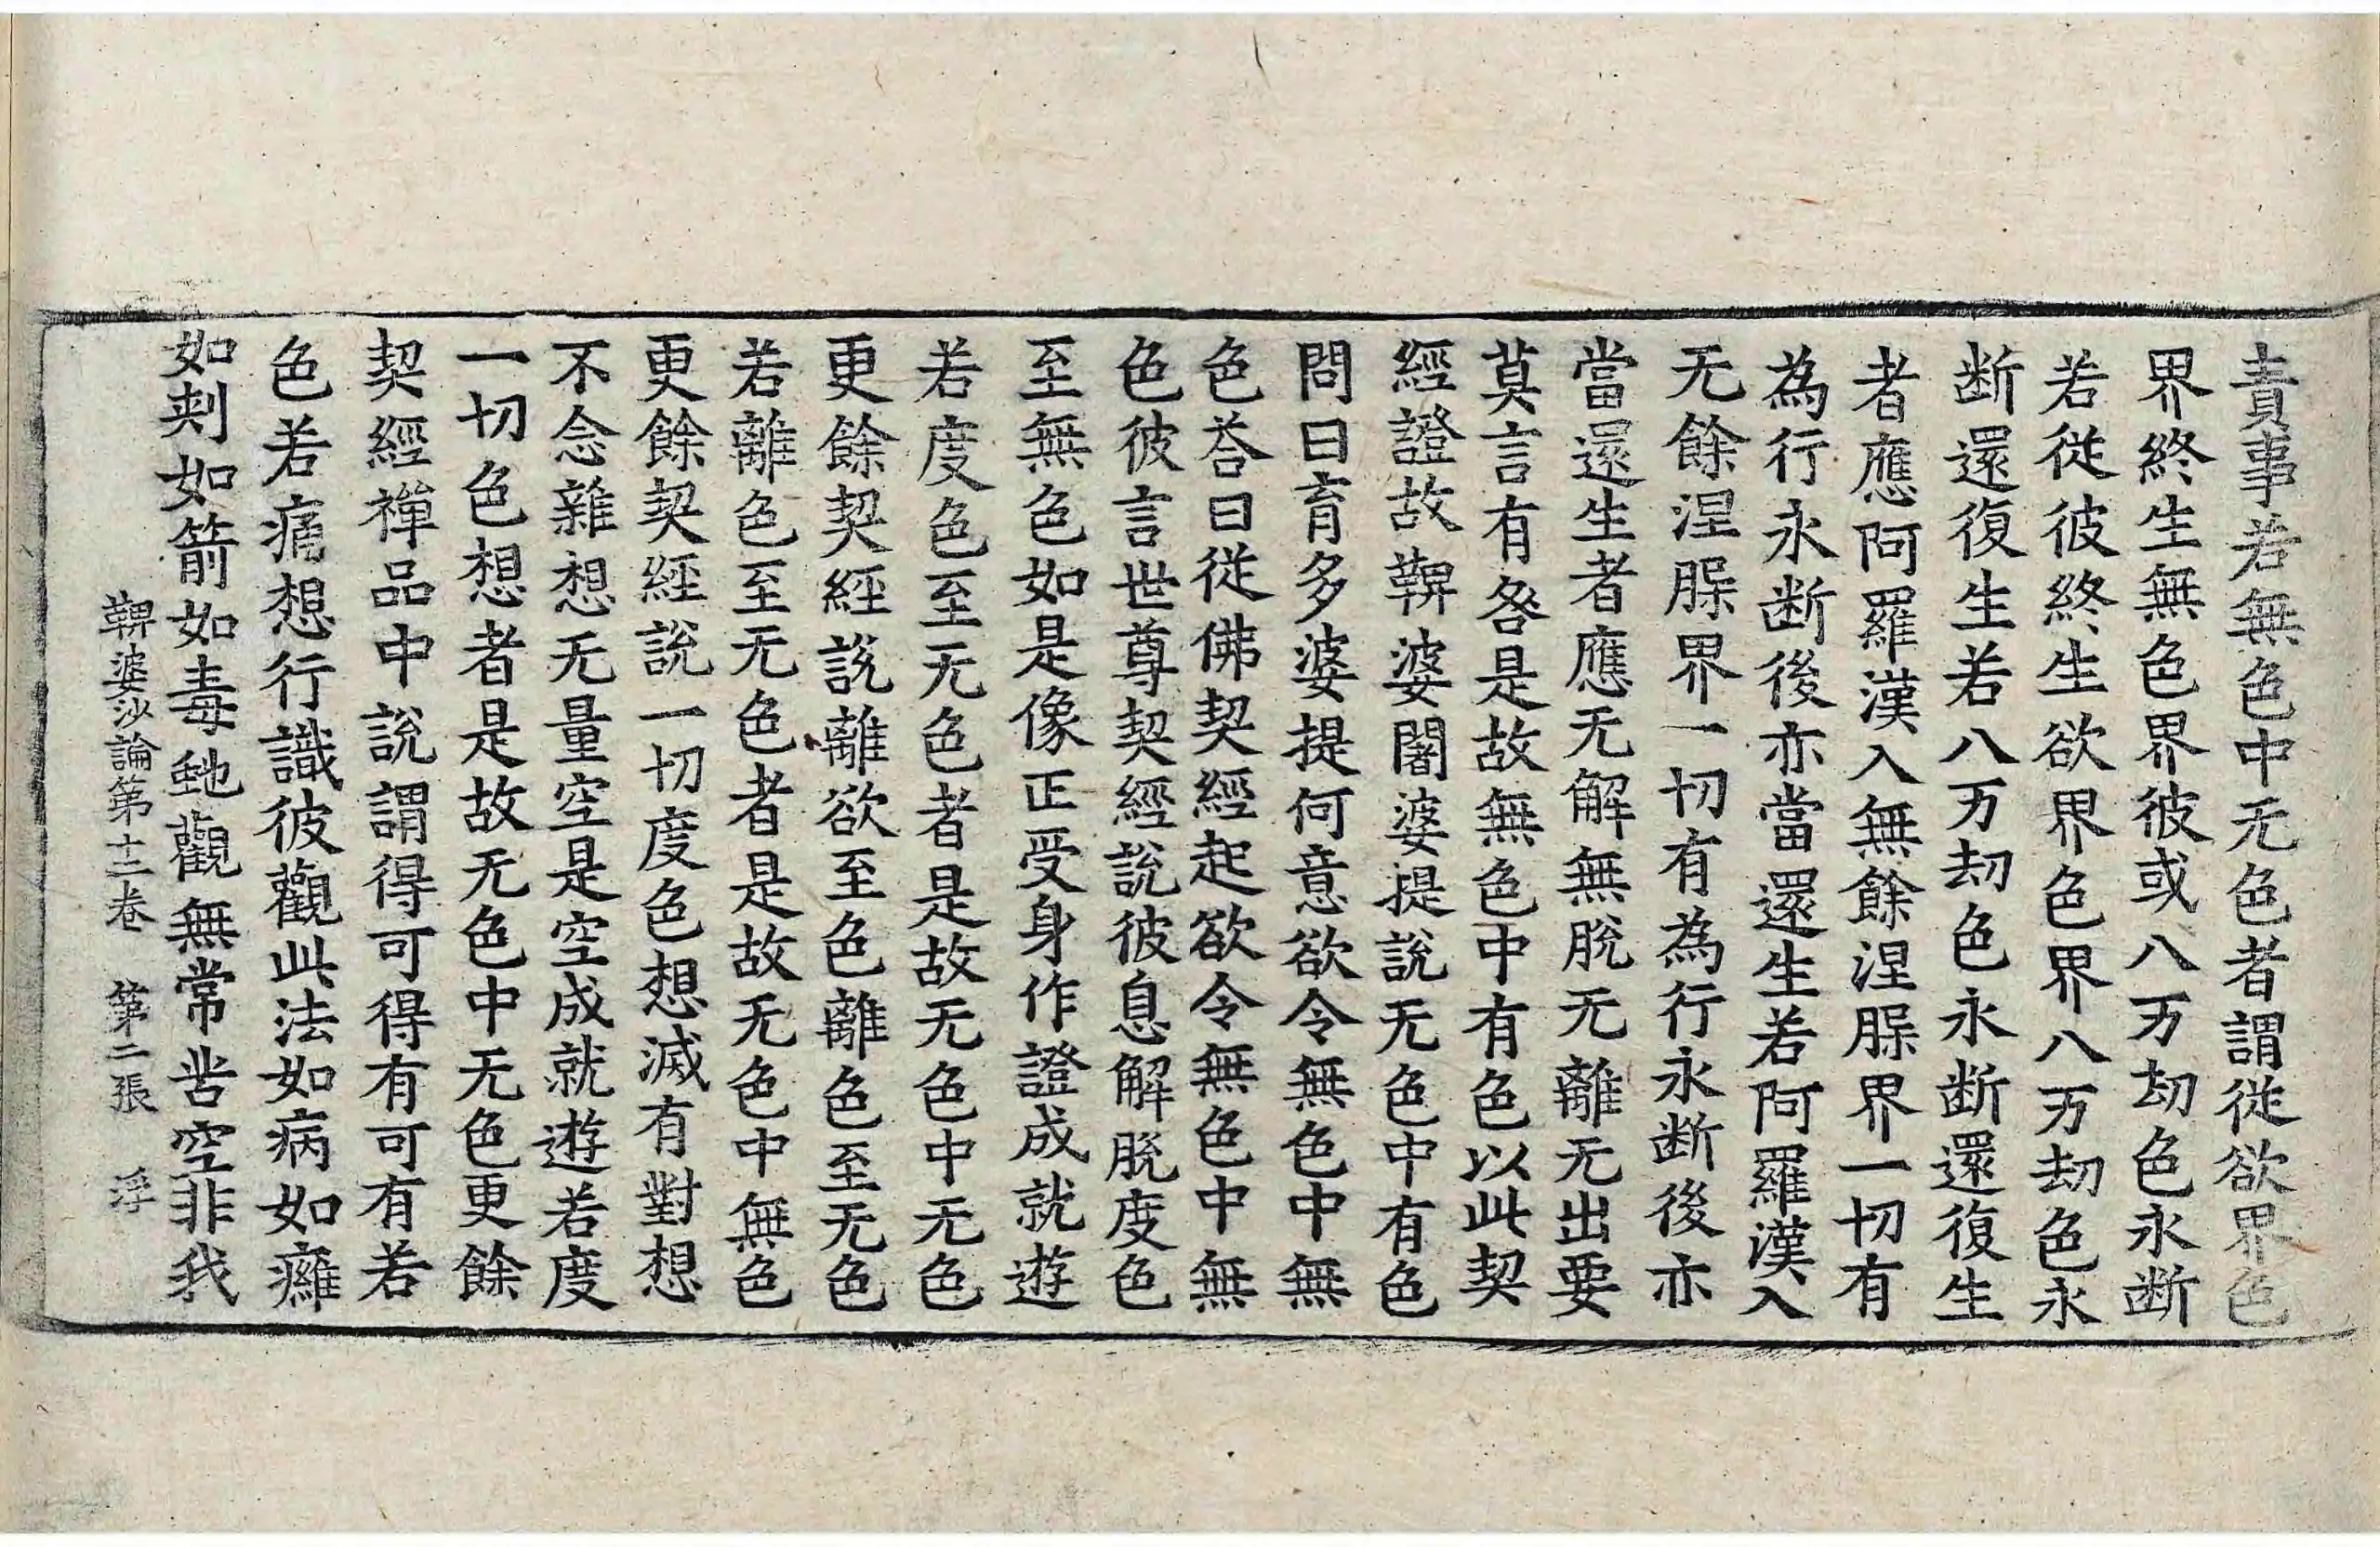 責事若無色中无色者謂從欲界色
界終生無色界彼或八万劫色永断
若從彼終生欲界色界八万劫色永
断還復生若八万劫色永断還復生
者應阿羅漢入無餘涅槃界一切有
為行永断後亦當還生若阿羅漢入
无餘涅槃界一切有為行永断後亦
當還生者應无解無脫无離无出要
莫言有咎是故無色中有色以此契
經證故鞞婆闍婆提說无色中有色
問曰育多婆提何意欲令無色中無
色荅曰從佛契經起欲令無色中無
色彼言世尊契經說彼息解脫度色
至無色如是像正受身作證成就遊
若度色至无色者是故无色中无色
更餘契經說離欲至色離色至无色
若離色至无色者是故无色中無色
更餘契經說一切度色想滅有對想
不念雜想无量空是空成就遊若度
一切色想者是故无色中无色更餘
契經禪品中說謂得可得有可有若
色若痛想行識彼觀此法如病如癰
如刺如箭如毒虵觀無常苦空非我
鞞婆沙論第十二卷 第二張 浮